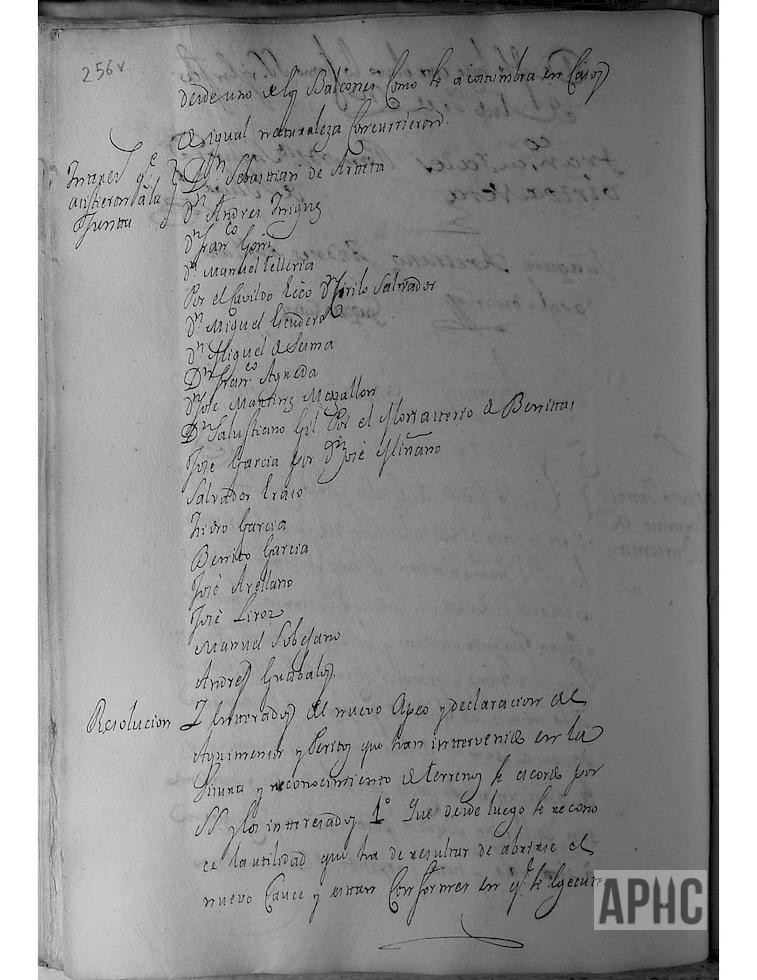 256v
desde uno de los Balcones Como se acostumbra en Casos
de igual naturaleza Concurrieron.
Intteres.s q.e
asistieron a la
Juntta
D.n Sebastian de Arieta
D.n Andres Iniguez
D.n Fran.co Goñi
D.n Manuel Telleria
Por el Cavildo Ecco D.n Zirilo Salvador
D.n Miguel Escudero
D.n Miguel de Sesma
D.n Fran.co Agreda
D.n José Martinez Magallon
D.n Salustiano Gil Por el Monasterio de Benitas
José Garcia por D.n José Miñano
Salvador Eraso
Isidro Garcia
Benito Garcia
José Arellano
José Liroz
Manuel Sobejano
Andres Guabalos
Resolucion Y Entterados del nuevo Apeo y declaracion del
Agrimensor y Peritos que han intervenido en la
y reconocimiento de terrenos se acordó por
SS. y los intteresados 1.º Que desde luego se recono
ce la utilidad que ha de resultar de abrirse el
nuevo Cauce y estan Conformes en q.e se Egecute
APHC